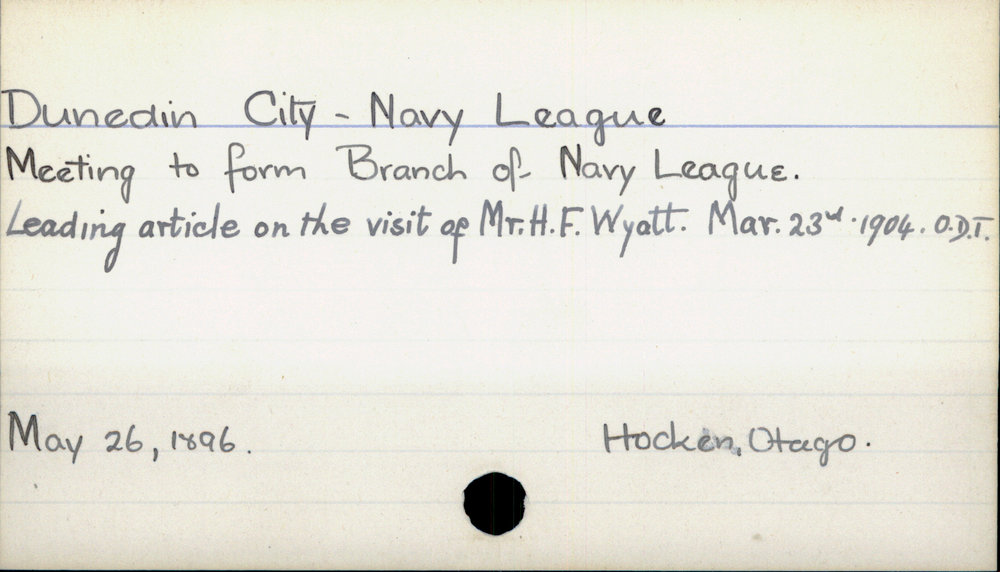 Dunedin City - Navy League
Meeting to form Branch of Navy League.
Leading article on the visit of Mr. H. F. Wyatt. Mar. 23rd. 1904. O.D.T.
May 26, 1896. Hocken, Otago.